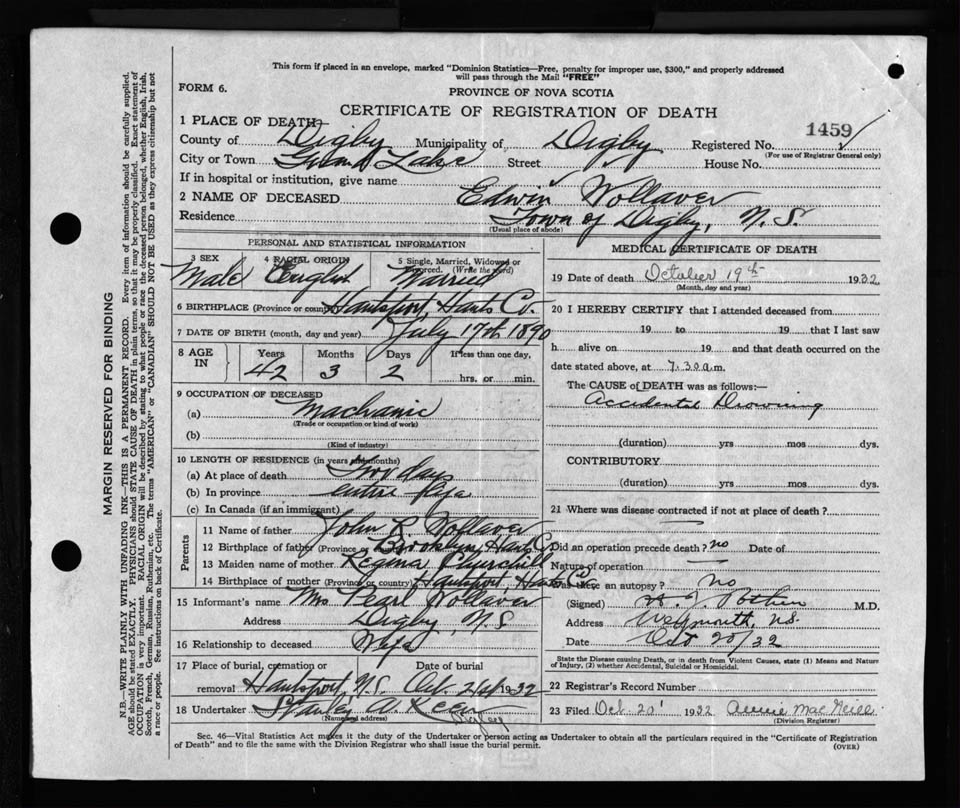 This form if placed in an envelope, marked "Dominion Statistics—Free, penalty for improper use, $300," and properly addressed
will pass through the Mail "FREE"
FORM 6.
PROVINCE OF NOVA SCOTIA
CERTIFICATE OF REGISTRATION OF DEATH
1459
1 PLACE OF DEATH—
County of Digby Municipality of Digby Registered No.
(For use of Registrar General only)
City or Town Lake Street House No.
If in hospital or institution, give name
2 NAME OF DECEASED Edwin Vollaver
Residence Town of Digby, N.S.
(Usual place of abode)
PERSONAL AND STATISTICAL INFORMATION
3 SEX Male
4 RACIAL ORIGIN English
5 Single, Married, Widowed or Divorced. (Write the word) Married
6 BIRTHPLACE (Province or country) Hantsport, Hants Co.
7 DATE OF BIRTH (month, day and year) July 17th 1890
8 AGE IN Years 42 Months 3 Days 2 If less than one day, hrs. or min.
9 OCCUPATION OF DECEASED
(a) Machanic
(Trade or occupation or kind of work)
(b)
(Kind of industry)
10 LENGTH OF RESIDENCE (in years and months)
(a) At place of death Two days
(b) In province entire life
(c) In Canada (if an immigrant)
Parents
11 Name of father John R Vollaver
12 Birthplace of father (Province or country) Brooklyn, Hants Co
13 Maiden name of mother Regina Churchill
14 Birthplace of mother (Province or country) Hantsport, Hants Co
15 Informant's name Mrs Pearl Vollaver
Address Digby, N.S
16 Relationship to deceased Wife
17 Place of burial, cremation or removal Hantsport, N.S. Date of burial Oct. 21st 1932
18 Undertaker Stanley A. Keen Digby
(Name and address)
MEDICAL CERTIFICATE OF DEATH
19 Date of death October 19th 1932
(Month, day and year)
20 I HEREBY CERTIFY that I attended deceased from
19 to 19 that I last saw
h alive on 19 and that death occurred on the
date stated above, at 7.30 a.m.
The CAUSE of DEATH was as follows:—
Accidental Drowning
(duration) yrs mos dys.
CONTRIBUTORY
(duration) yrs mos dys.
21 Where was disease contracted if not at place of death?
Did an operation precede death? no Date of
Nature of operation
Was there an autopsy? no
(Signed) M.D.
Address Weymouth, N.S.
Date Oct 20/32
State the Disease causing Death, or in death from Violent Causes, state (1) Means and Nature
of Injury, (2) whether Accidental, Suicidal or Homicidal.
22 Registrar's Record Number
23 Filed Oct. 20 1932 Annie MacNeill
(Division Registrar)
Sec. 46—Vital Statistics Act makes it the duty of the Undertaker or person acting as Undertaker to obtain all the particulars required in the "Certificate of Registration
of Death" and to file the same with the Division Registrar who shall issue the burial permit.
(OVER)
MARGIN RESERVED FOR BINDING
N.B.—WRITE PLAINLY WITH UNFADING INK—THIS IS A PERMANENT RECORD. Every item of information should be carefully supplied.
AGE should be stated EXACTLY. PHYSICIANS should STATE CAUSE OF DEATH in plain terms, so that it may be properly classified. Exact statement of
OCCUPATION is very important. RACIAL ORIGIN will be described by stating to what people or race the deceased person belonged, whether English, Irish,
Scotch, French, German, Russian, Ruthenian, etc. The terms "AMERICAN" or "CANADIAN" SHOULD NOT BE USED as they express citizenship but not
a race or people. See instructions on back of Certificate.